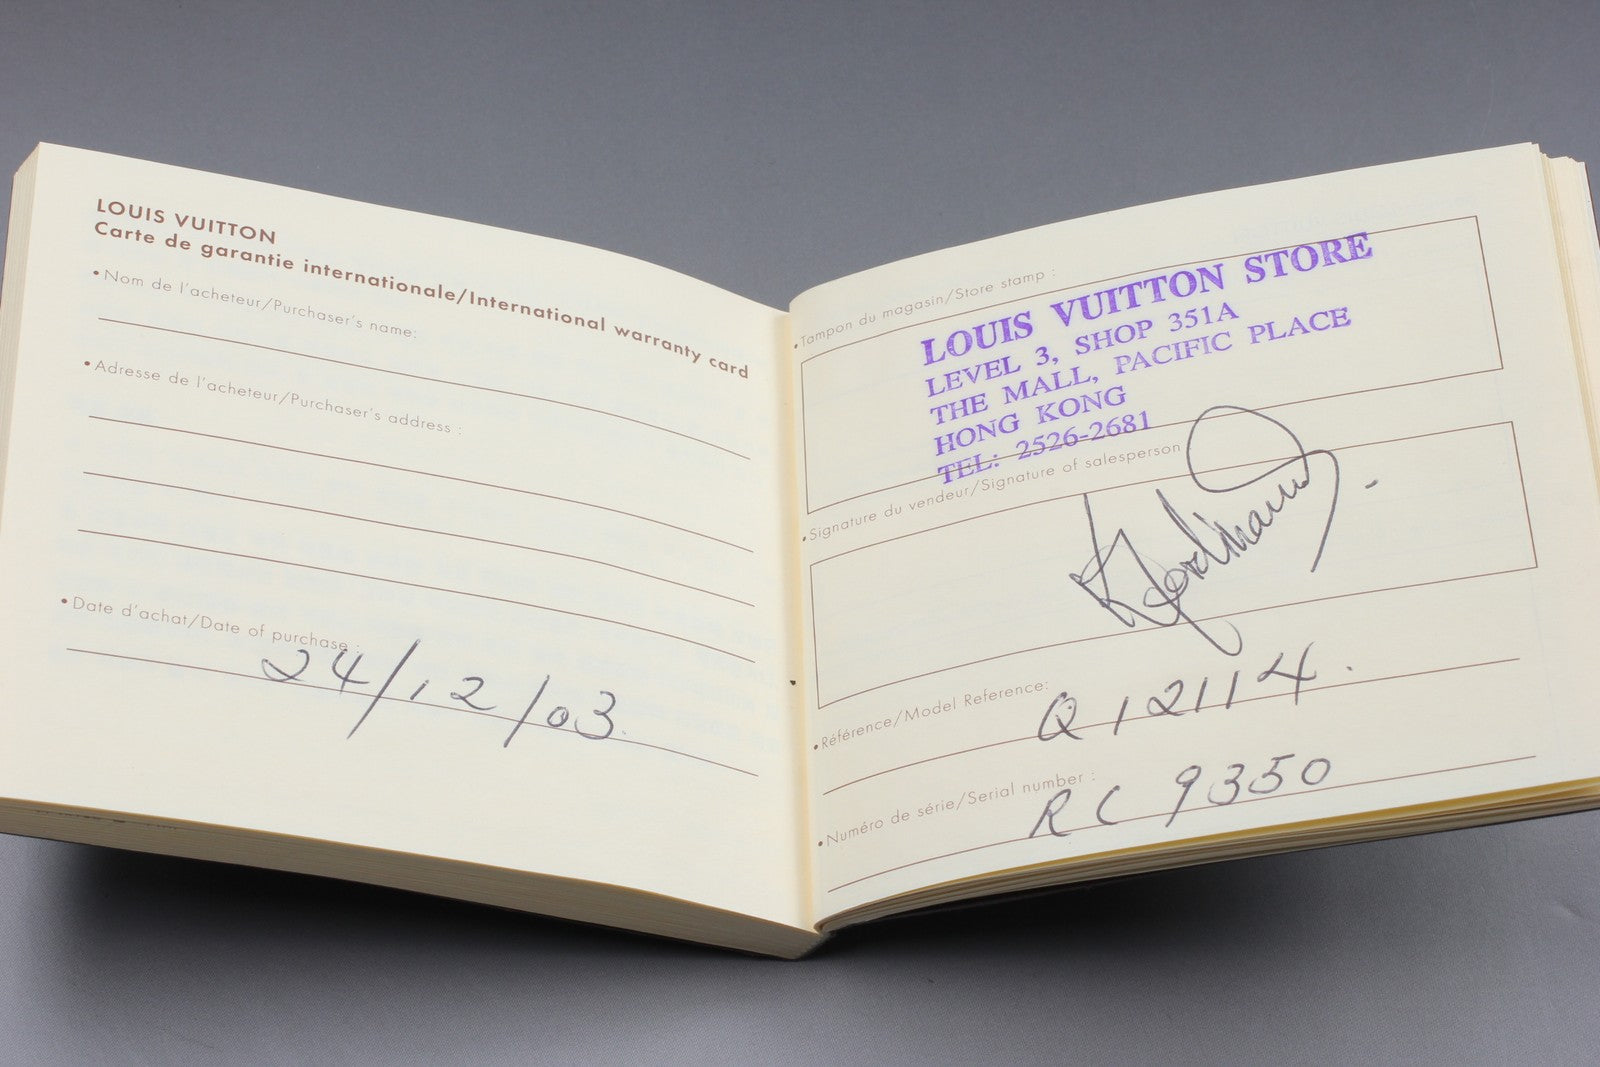 LOUIS VUITTON
Carte de garantie internationale/International warranty card
•Nom de l'acheteur/Purchaser's name:
•Adresse de l'acheteur/Purchaser's address :
•Date d'achat/Date of purchase :
24/12/03.
•Tampon du magasin/Store stamp :
LOUIS VUITTON STORE
LEVEL 3, SHOP 351A
THE MALL, PACIFIC PLACE
HONG KONG
TEL: 2526-2681
•Signature du vendeur/Signature of salesperson
•Référence/Model Reference:
Q12114.
•Numéro de série/Serial number :
RC 9350